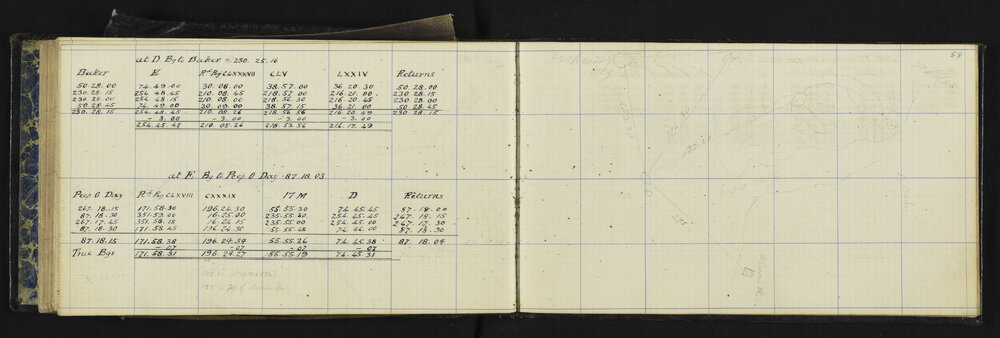 at D Bg to Baker = 230. 25. 16
Baker E Rd Peg CLXXXVII CLV LXXIV Returns
50. 28. 00 74. 49. 00 30. 08. 00 38. 57. 00 36. 20. 30 50. 28. 00
230. 28. 15 254. 48. 45 210. 08. 45 218. 57. 00 216. 21. 00 230. 28. 15
230. 28. 00 254. 48. 15 210. 08. 00 218. 56. 30 216. 20. 45 230. 28. 00
50. 28. 45 74. 49. 00 30. 09. 00 38. 57. 15 36. 21. 00 50. 28. 45
230. 28. 15 254. 48. 45 210. 08. 26 218. 56. 56 216. 20. 49 230. 28. 15
- 3. 00 - 3. 00 - 3. 00 - 3. 00
254. 45. 45 210. 05. 26 218. 53. 56 216. 17. 49
at E Bg to Peep O Day - 87. 18. 03
Peep O Day Rd Peg CLXXVIII CXXXIX 17 M D Returns
267. 18. 15 171. 58. 30 196. 24. 30 55. 55. 30 74. 45. 45 87. 18. 00
87. 18. 30 351. 59. 00 16. 25. 00 235. 55. 30 254. 45. 45 267. 18. 15
267. 17. 45 351. 58. 15 16. 24. 15 235. 55. 00 254. 45. 00 267. 17. 30
87. 18. 30 171. 58. 45 196. 24. 30 55. 55. 45 74. 46. 00 87. 18. 30
87. 18. 15 171. 58. 38 196. 24. 34 55. 55. 26 74. 45. 38 87. 18. 04
- 07 - 07 - 07 - 07
True Bgs 171. 58. 31 196. 24. 27 55. 55. 19 74. 45. 31
58